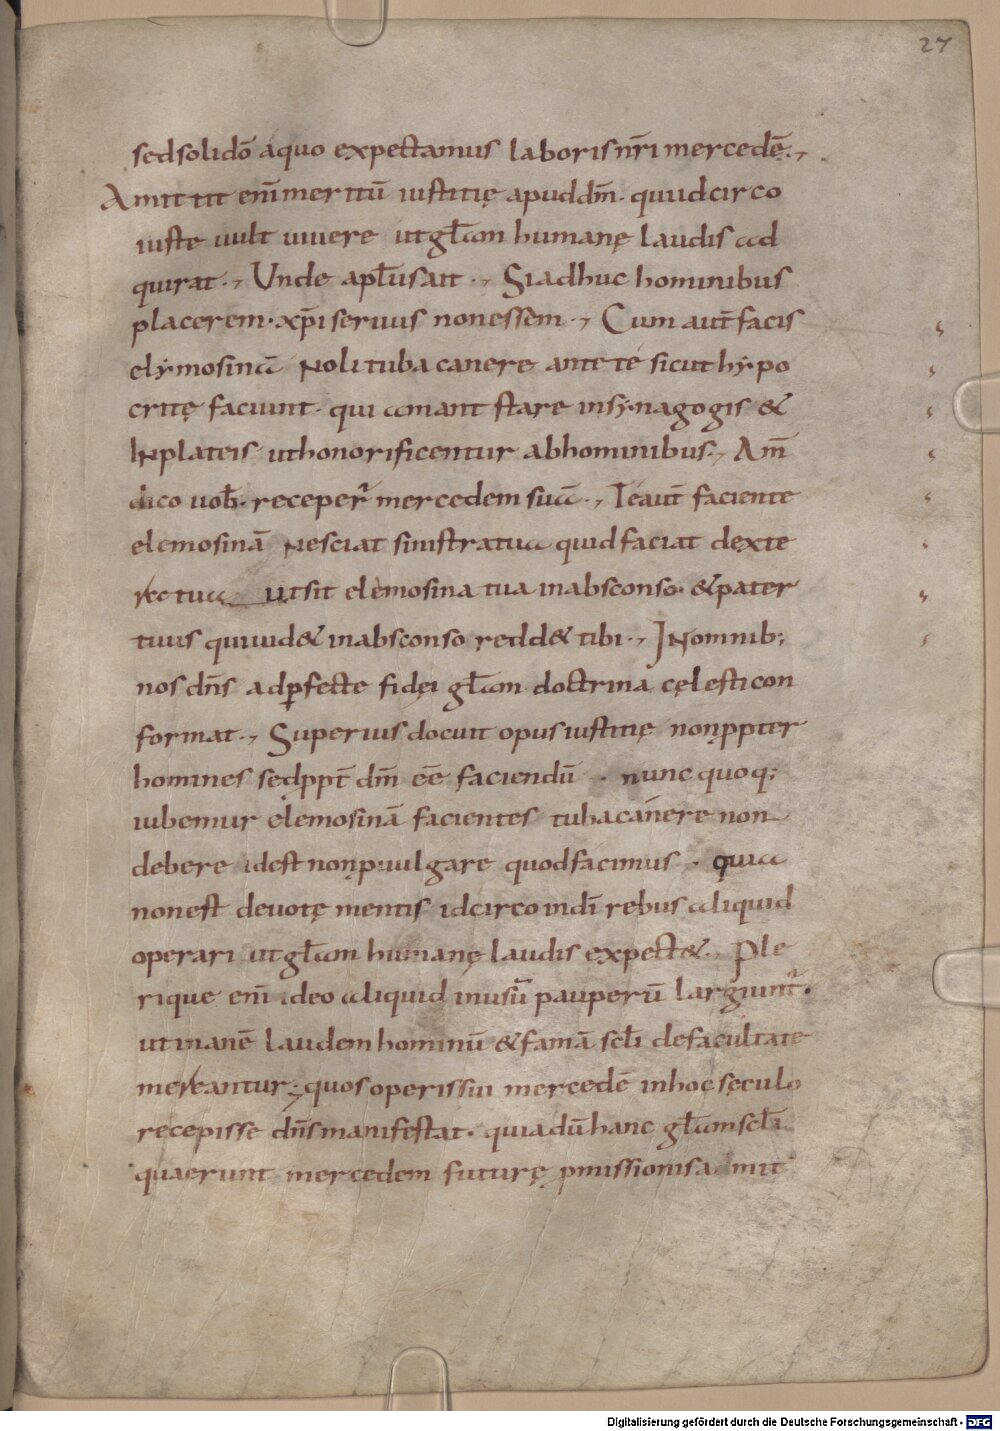 27
sed solidō a quo expectamus laboris nr̄i mercedē.,
Amittit eni̅ meritū iustitię apud dm̄. qui idcirco
iuste uult uiuere ut gl̄am humanę laudis ad
quirat., Unde apl̄us ait., Si adhuc hominibus
placerem. xp̄i seruus non essem., Cum aut̄ facis
elymosinā Noli tuba canere ante te sicut hypo
critę faciunt. qui amant stare in synagogis &
IN plateis ut honorificentur ab hominibus., Am̄
dico uob̄. receper̄ mercedem suā., Te aut̄ faciente
elemosinā Nesciat sinistra tua quid faciat dexte
ra tua ut sit elemosina tua in absconso. & pater
tuus qui uid& in absconso redd& tibi., IN omnib;
nos dn̄s ad ꝑfecte fidei gl̄am doctrina cęlesti con
format., Superius docuit opus iustitię non ꝓpter
homines sed ꝓpt̄ dm̄ ēē faciendū. nunc quoq;
iubemur elemosinā facientes tuba canere non
debere id est non puulgare quod facimus. quia
non est deuotę mentis idcirco in di̅ rebus aliquid
operari ut gl̄am humanę laudis expect&., Ple
rique eni̅ ideo aliquid in usū pauperū largiunt̄.
ut inanē laudem hominū & famā scl̄i de facultate
mereantur., quos operis sui mercedē in hoc seculo
recepisse dn̄s manifestat. quia dū hanc gl̄am scl̄i
quaerunt mercedem futurę ꝓmissionis amit
Digitalisierung gefördert durch die Deutsche Forschungsgemeinschaft - DFG